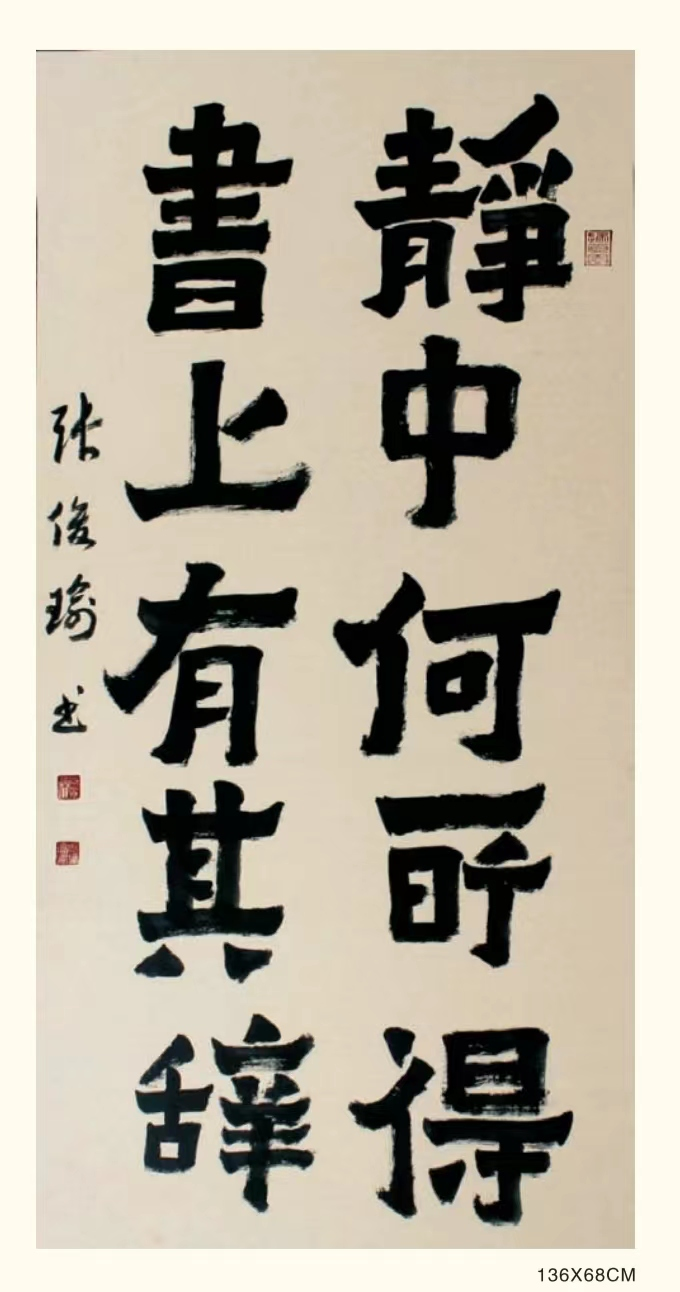 靜中何所得
書上有其辞
张俊瑜书
136X68CM